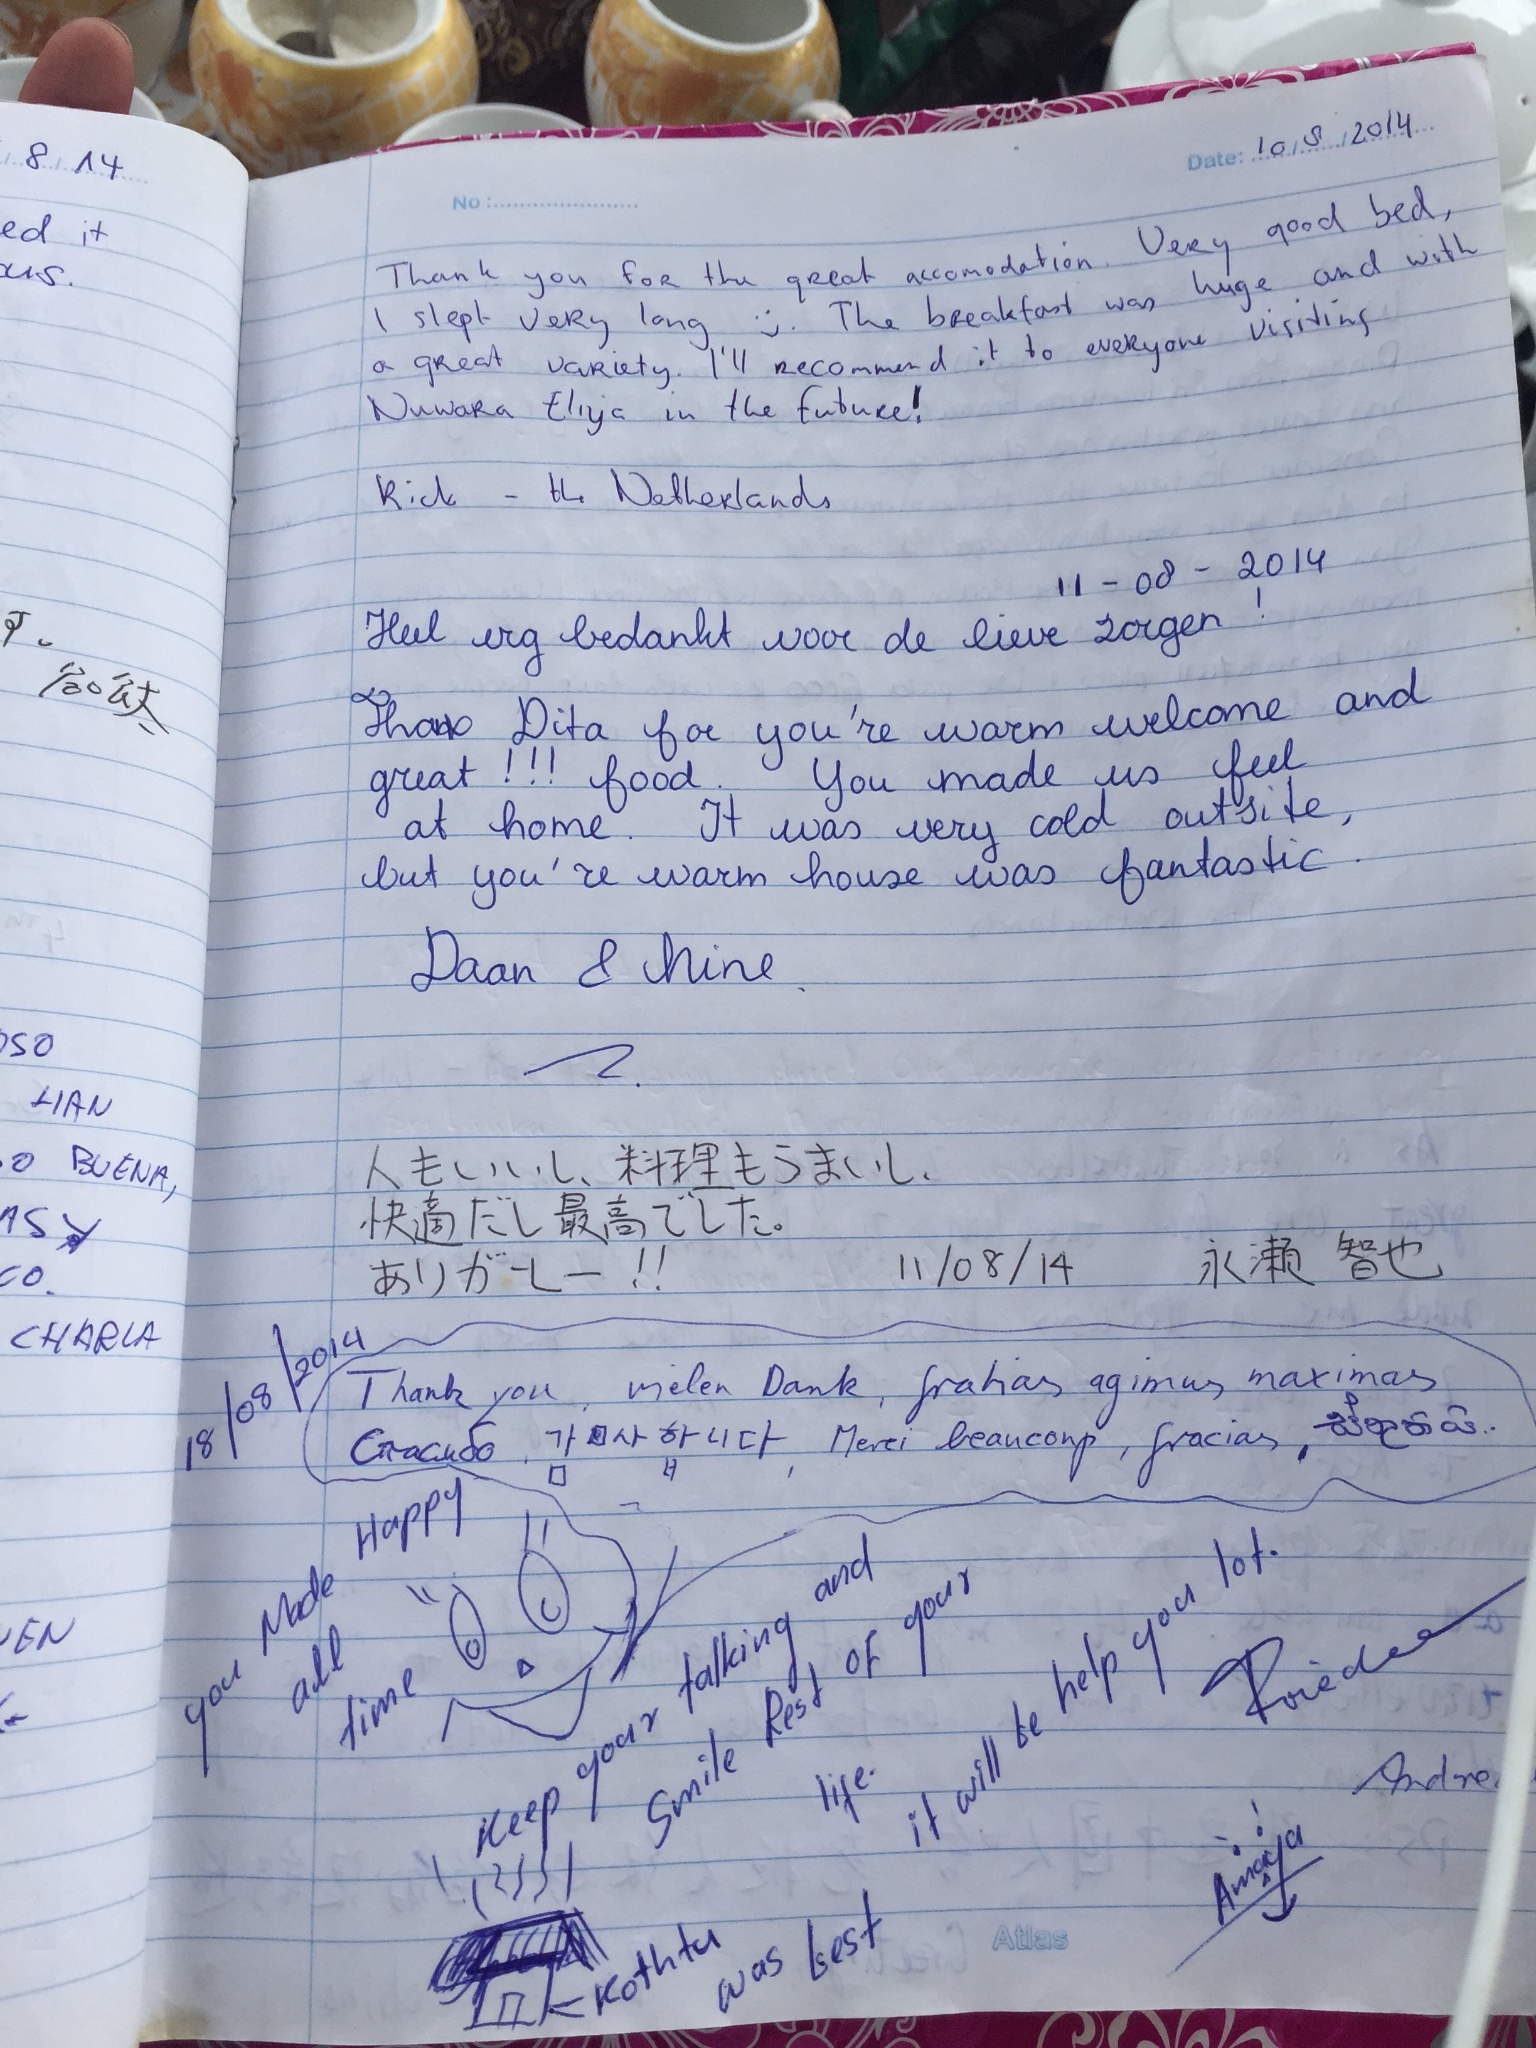 8 14
ed it
ous.
OSO
HAN
O BUENA,
CO.
CHARLA
No :
Date: 10/8/2014
Thank you for the great accomodation. Very good bed,
I slept very long :). The breakfast was huge and with
a great variety. I'll recommend it to everyone visiting
Nuwara Eliya in the future!
Rick - the Netherlands
11-08-2014
Heel erg bedankt voor de lieve zorgen!
Thank Dita for you're warm welcome and
great!!! food. You made us feel
at home. It was very cold outsite,
but you're warm house was fantastic.
Daan & Nine.
人もいいし、料理もうまいし、
快適だし最高でした。
ありがとー!!
11/08/14
永瀬 智也
18/08/2014
Thank you, vielen Dank, gratias agimus maximas
Спасибо, 감사합니다, Merci beaucoup, gracias,
you Made Happy
all
time
Keep your talking and
Smile Rest of your
life.
it will be help you lot.
Andrea
Amaya
Koththu
was best
Atlas